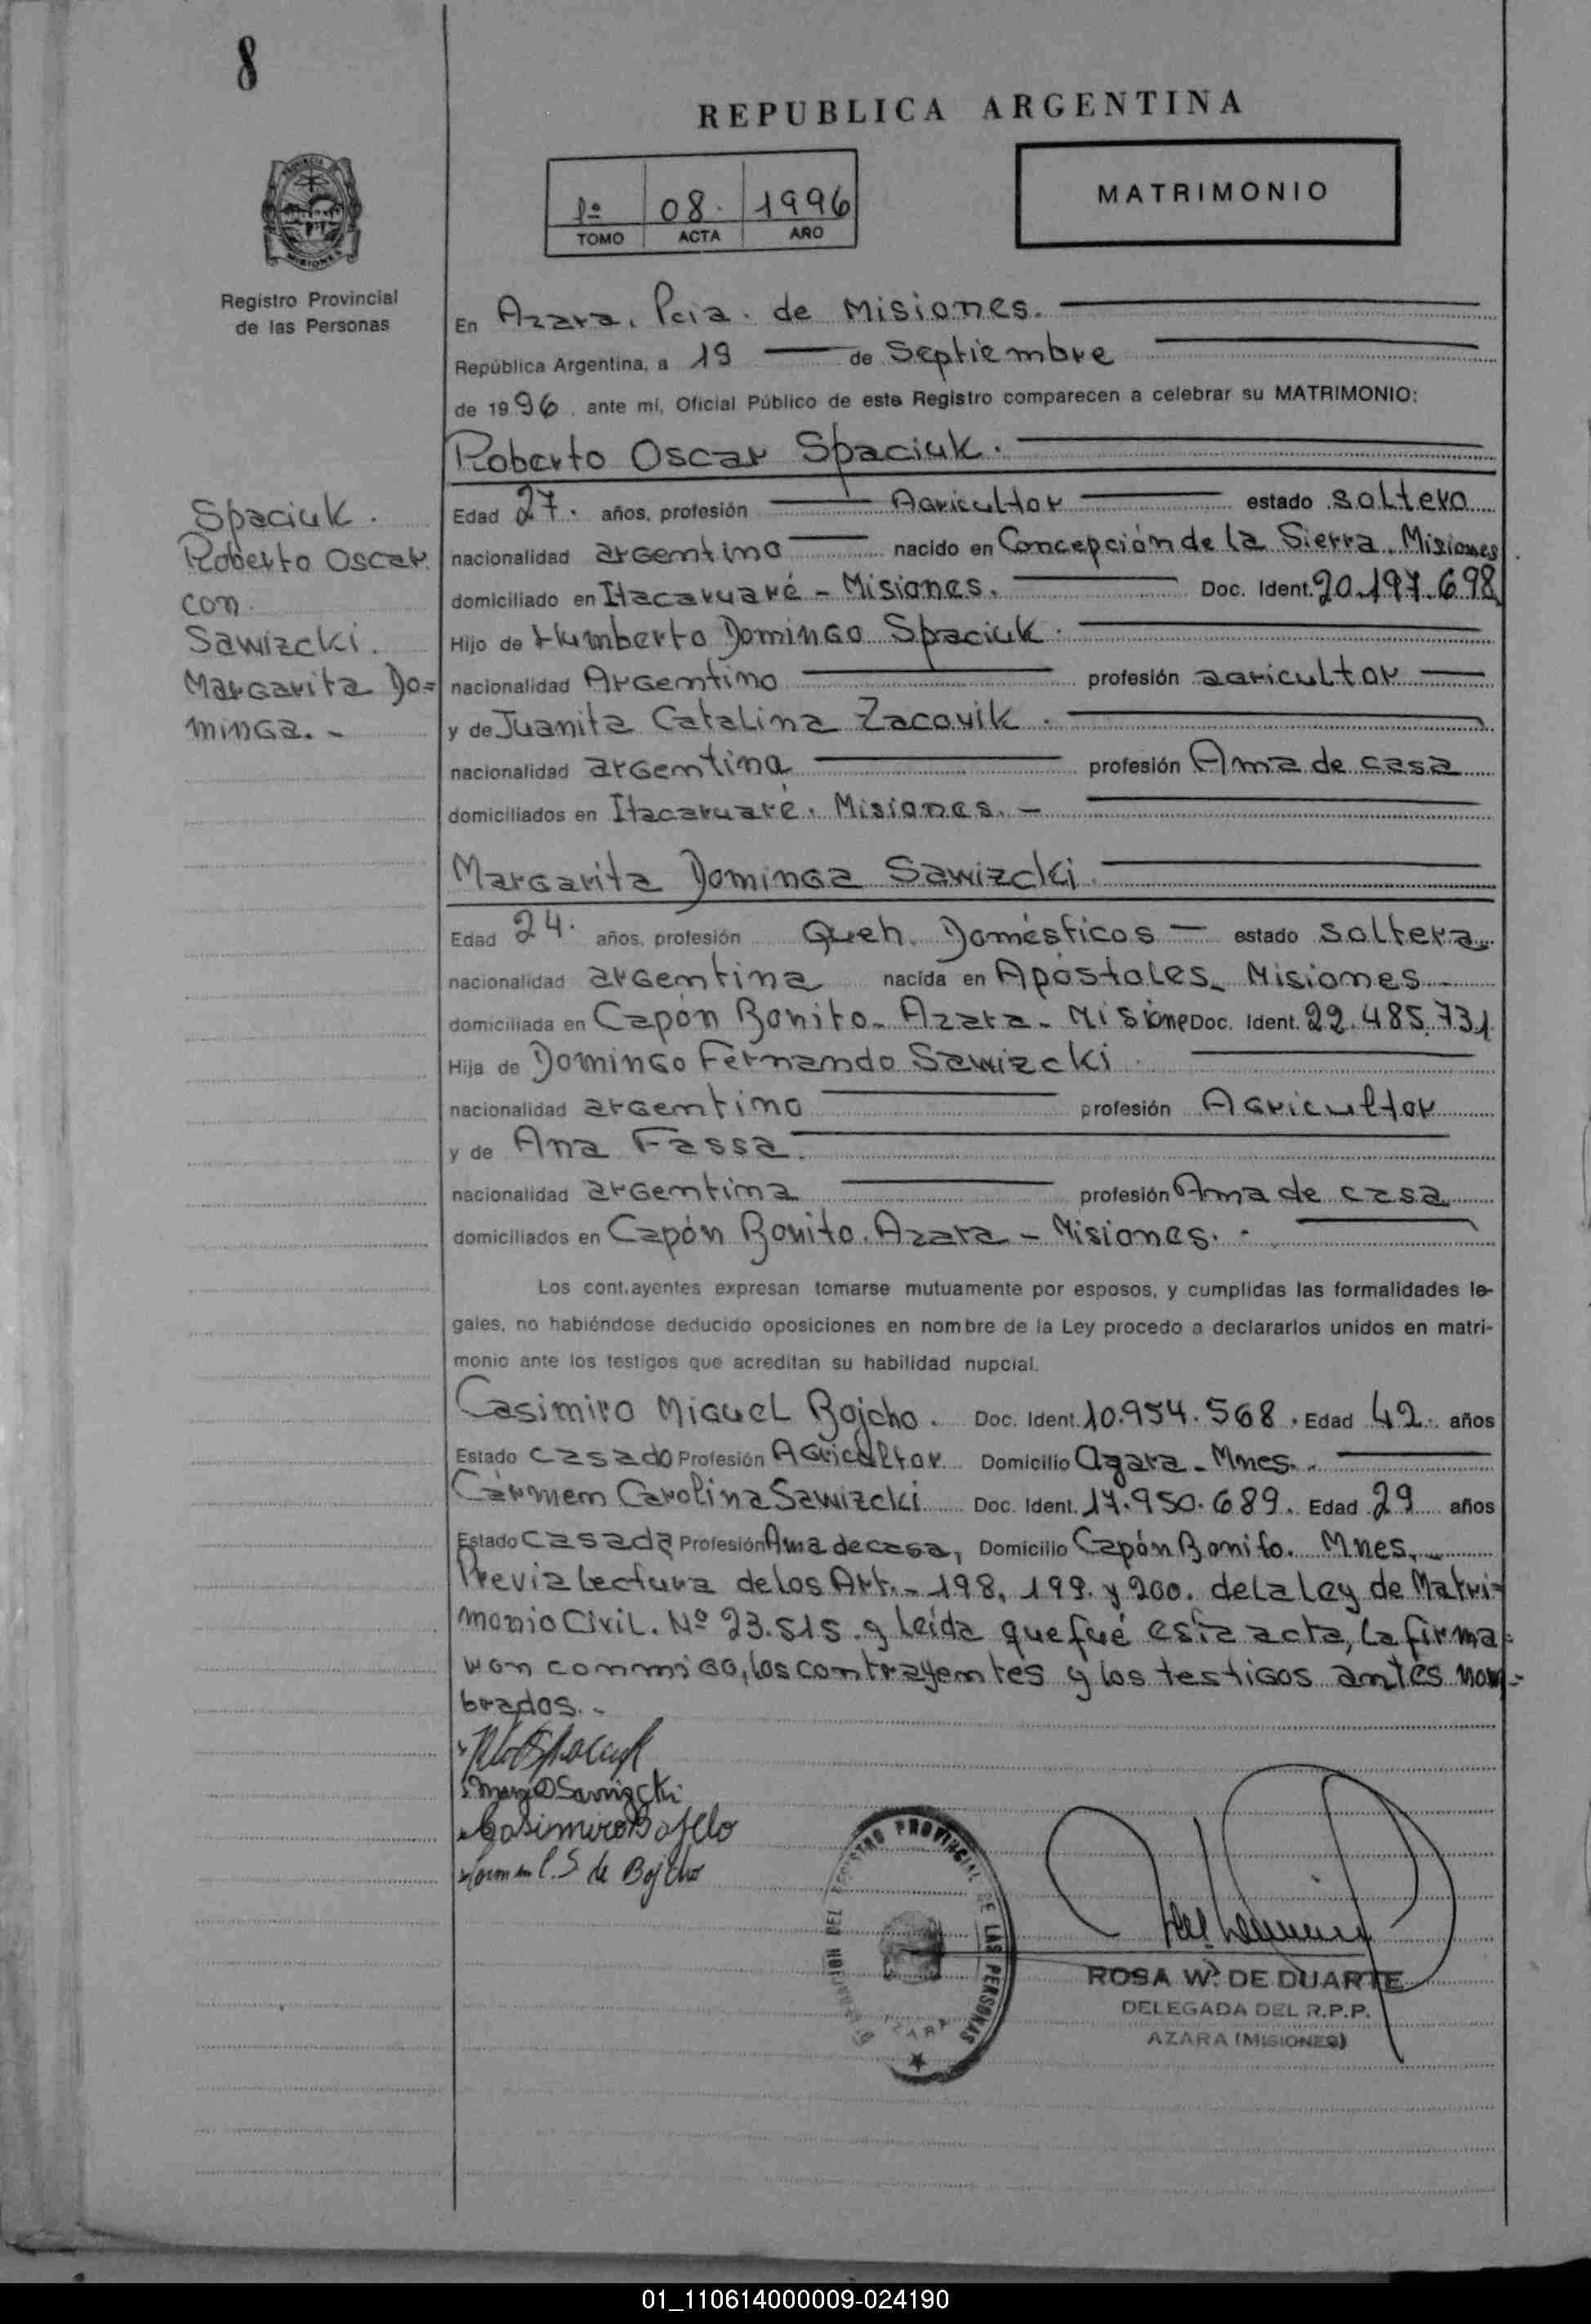 8
REPUBLICA ARGENTINA
1º 08. 1996
TOMO ACTA AÑO
MATRIMONIO
PROVINCIA
MISIONES
Registro Provincial
de las Personas
En Azara. Pcia. de Misiones.
República Argentina, a 19 de Septiembre
de 1996, ante mí, Oficial Público de este Registro comparecen a celebrar su MATRIMONIO:
Roberto Oscar Spaciuk.
Spaciuk.
Roberto Oscar.
con.
Sawizcki.
Margarita Do=
minga. -
Edad 27. años, profesión Agricultor estado soltero
nacionalidad argentino nacido en Concepción de la Sierra. Misiones
domiciliado en Itacaruaré - Misiones. Doc. Ident. 20.197.698
Hijo de Humberto Domingo Spaciuk.
nacionalidad Argentino profesión agricultor
y de Juanita Catalina Zacovik.
nacionalidad argentina profesión Ama de casa
domiciliados en Itacaruaré. Misiones. -
Margarita Dominga Sawizcki.
Edad 24. años, profesión Queh. Domésticos - estado soltera
nacionalidad argentina nacida en Apóstoles. Misiones
domiciliada en Capón Bonito - Azara - Misione Doc. Ident. 22.485.731
Hija de Domingo Fernando Sawizcki.
nacionalidad argentino profesión Agricultor
y de Ana Fassa.
nacionalidad argentina profesión Ama de casa
domiciliados en Capón Bonito. Azara - Misiones. -
Los cont.ayentes expresan tomarse mutuamente por esposos, y cumplidas las formalidades le-
gales, no habiéndose deducido oposiciones en nombre de la Ley procedo a declararlos unidos en matri-
monio ante los testigos que acreditan su habilidad nupcial.
Casimiro Miguel Bojcho. Doc. Ident. 10.954.568. Edad 42. años
Estado casado Profesión Agricultor Domicilio Azara - Mnes.
Cármem Carolina Sawizcki Doc. Ident. 17.950.689. Edad 29 años
Estado Casada Profesión Ama de casa, Domicilio Capón Bonito. Mnes.
Previa lectura de los Art. - 198, 199. y 200. de la Ley de Matri=
monio Civil. Nº 23.515. y leída que fué esta acta, la firma=
ron conmigo, los contrayentes y los testigos antes nom=
brados. -
Marg D Sawizcki
Casimiro Bojcho
Carmen C. S de Bojcho
REGISTRO PROVINCIAL DE LAS PERSONAS
AZARA
ROSA W. DE DUARTE
DELEGADA DEL R.P.P.
AZARA (MISIONES)
01_110614000009-024190